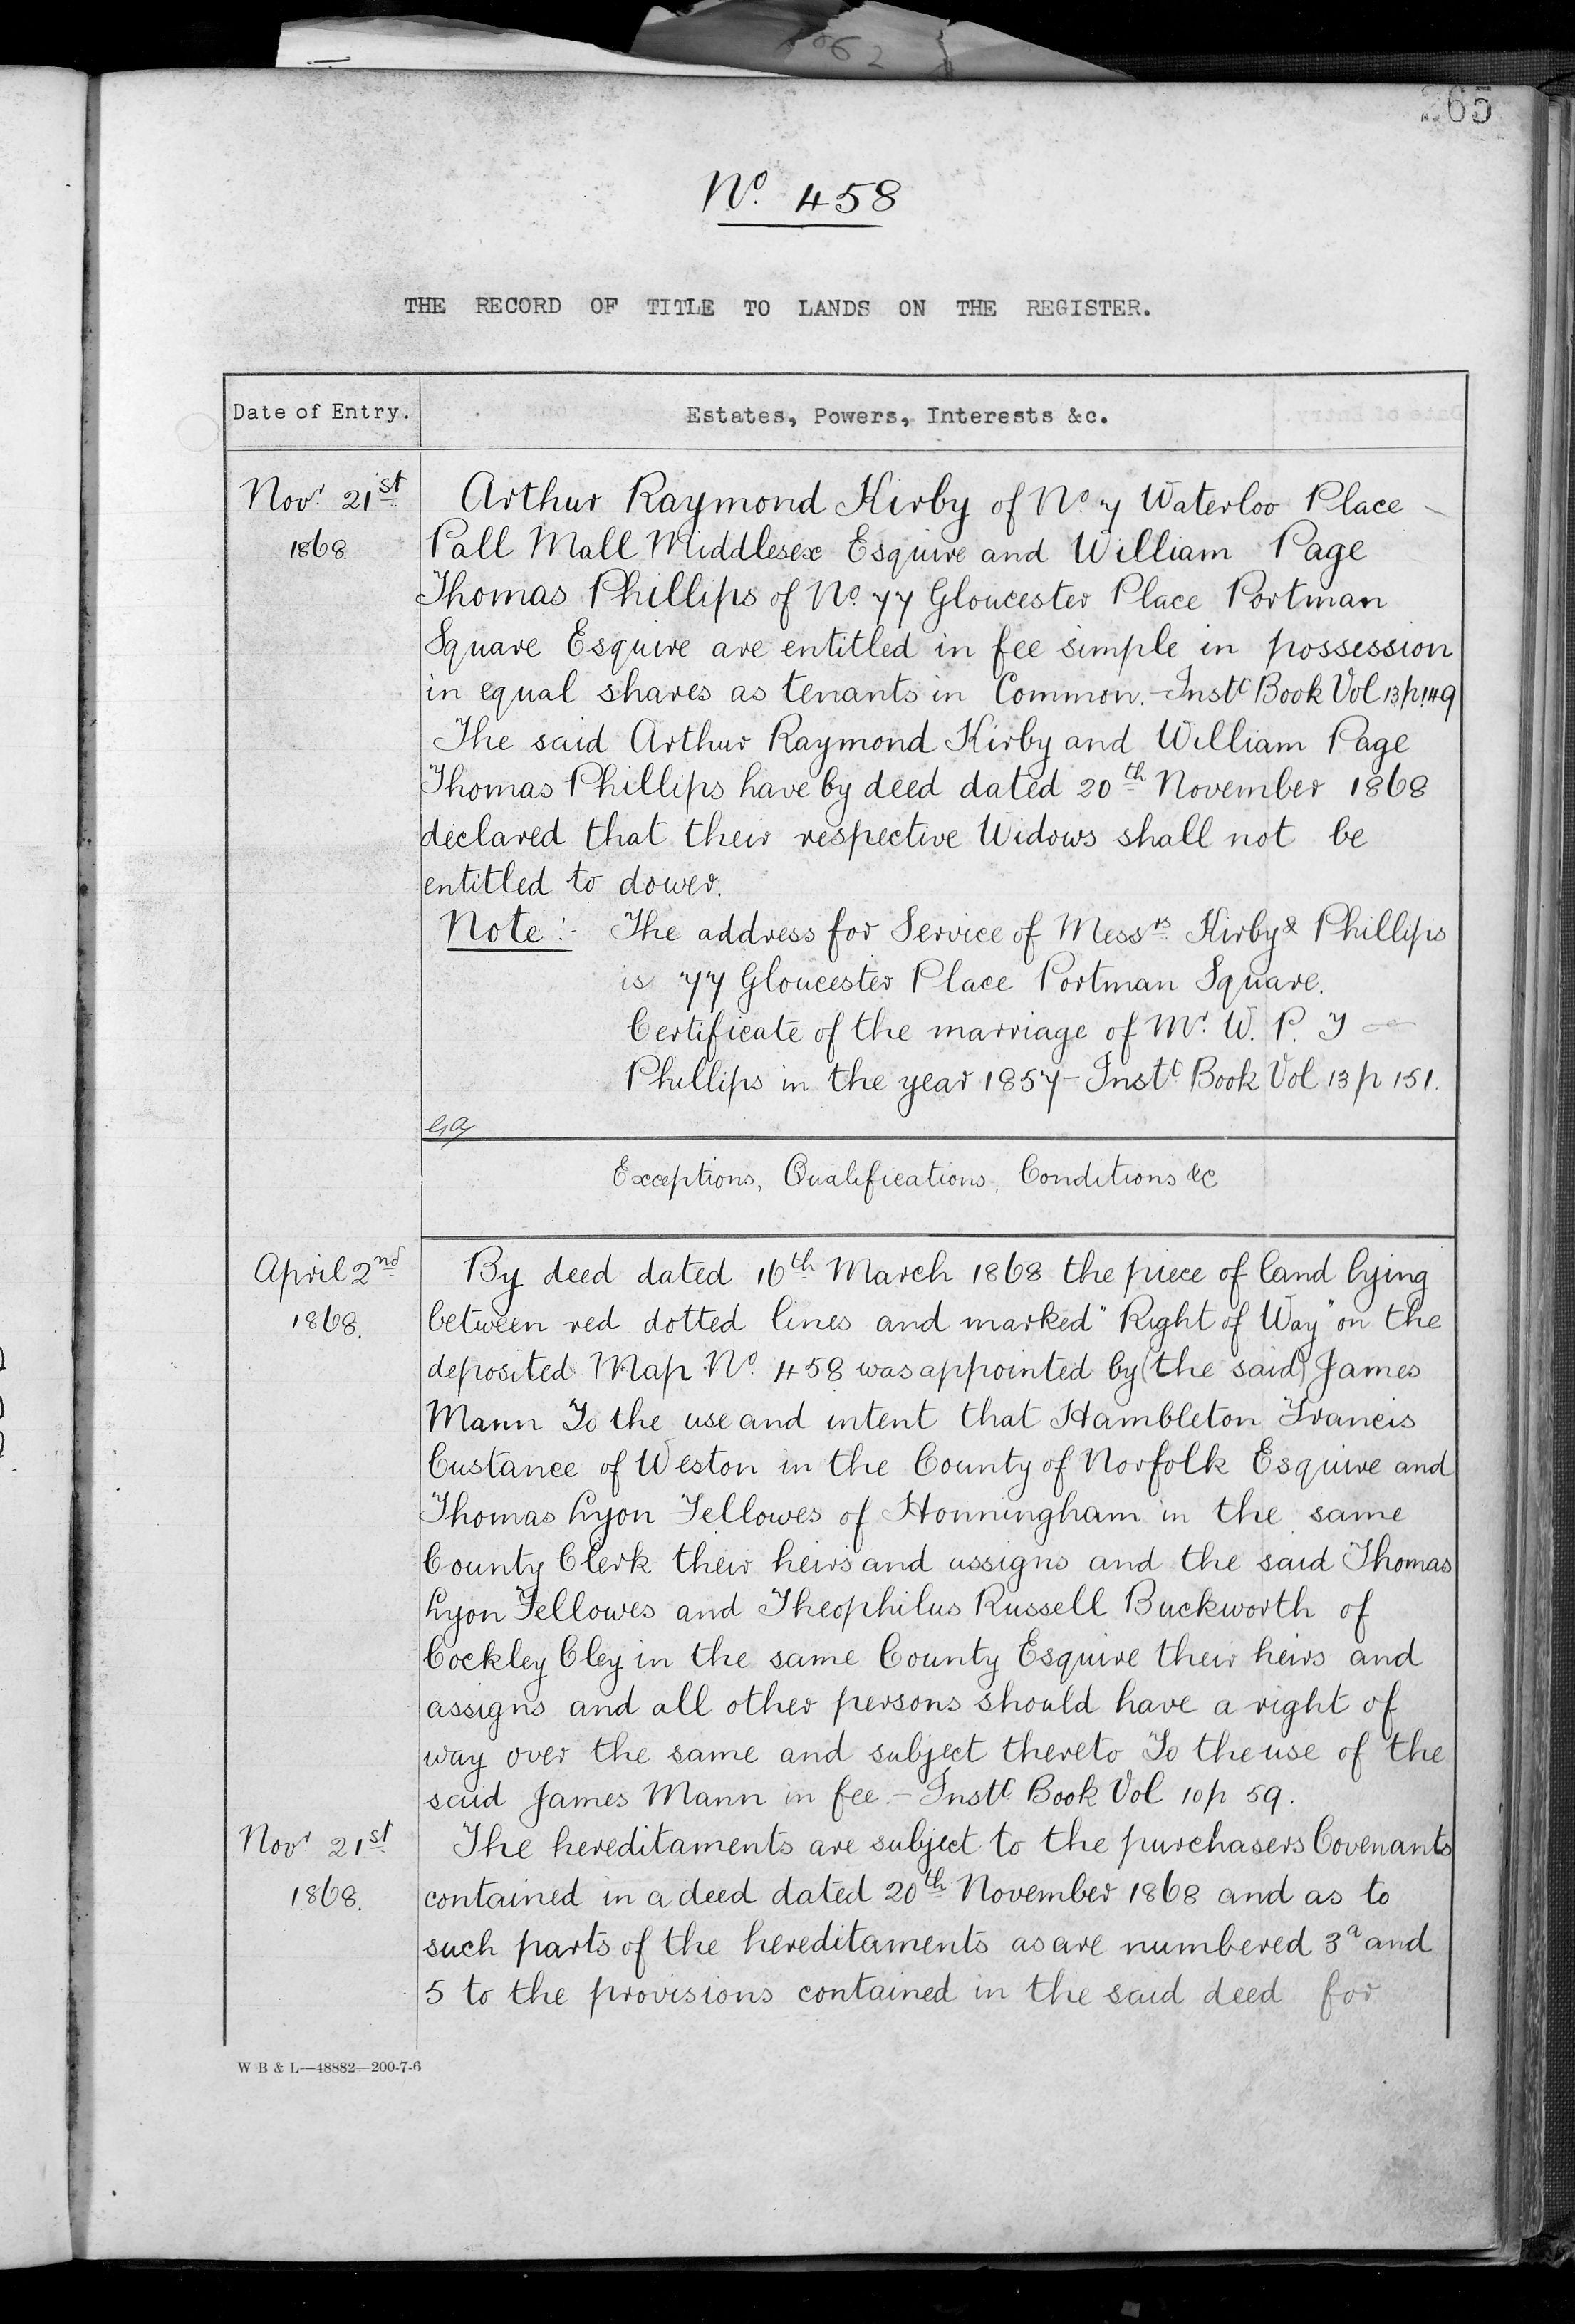 265
No. 458
THE RECORD OF TITLE TO LANDS ON THE REGISTER.
Date of Entry. Estates, Powers, Interests &c.
Novr 21st Arthur Raymond Kirby of No. 7 Waterloo Place
1868. Pall Mall Middlesex Esquire and William Page
Thomas Phillips of No. 77 Gloucester Place Portman
Square Esquire are entitled in fee simple in possession
in equal shares as tenants in Common. - Instt Book Vol 13 p 149
The said Arthur Raymond Kirby and William Page
Thomas Phillips have by deed dated 20th November 1868
declared that their respective Widows shall not be
entitled to dower.
Note :- The address for Service of Messrs. Kirby & Phillips
is 77 Gloucester Place Portman Square.
Certificate of the marriage of Mr. W. P. T
Phillips in the year 1857 - Instt Book Vol 13 p 151.
Exceptions, Qualifications, Conditions &c
April 2nd By deed dated 16th March 1868 the piece of land lying
1868. between red dotted lines and marked "Right of Way" on the
deposited Map No. 458 was appointed by (the said) James
Mann To the use and intent that Hambleton Francis
Custance of Weston in the County of Norfolk Esquire and
Thomas Lyon Fellowes of Honningham in the same
County Clerk their heirs and assigns and the said Thomas
Lyon Fellowes and Theophilus Russell Buckworth of
Cockley Cley in the same County Esquire their heirs and
assigns and all other persons should have a right of
way over the same and subject thereto To the use of the
said James Mann in fee. - Instt Book Vol 10 p 59.
Novr 21st The hereditaments are subject to the purchasers Covenants
1868. contained in a deed dated 20th November 1868 and as to
such parts of the hereditaments as are numbered 3a and
5 to the provisions contained in the said deed for
W B & L—48882—200-7-6